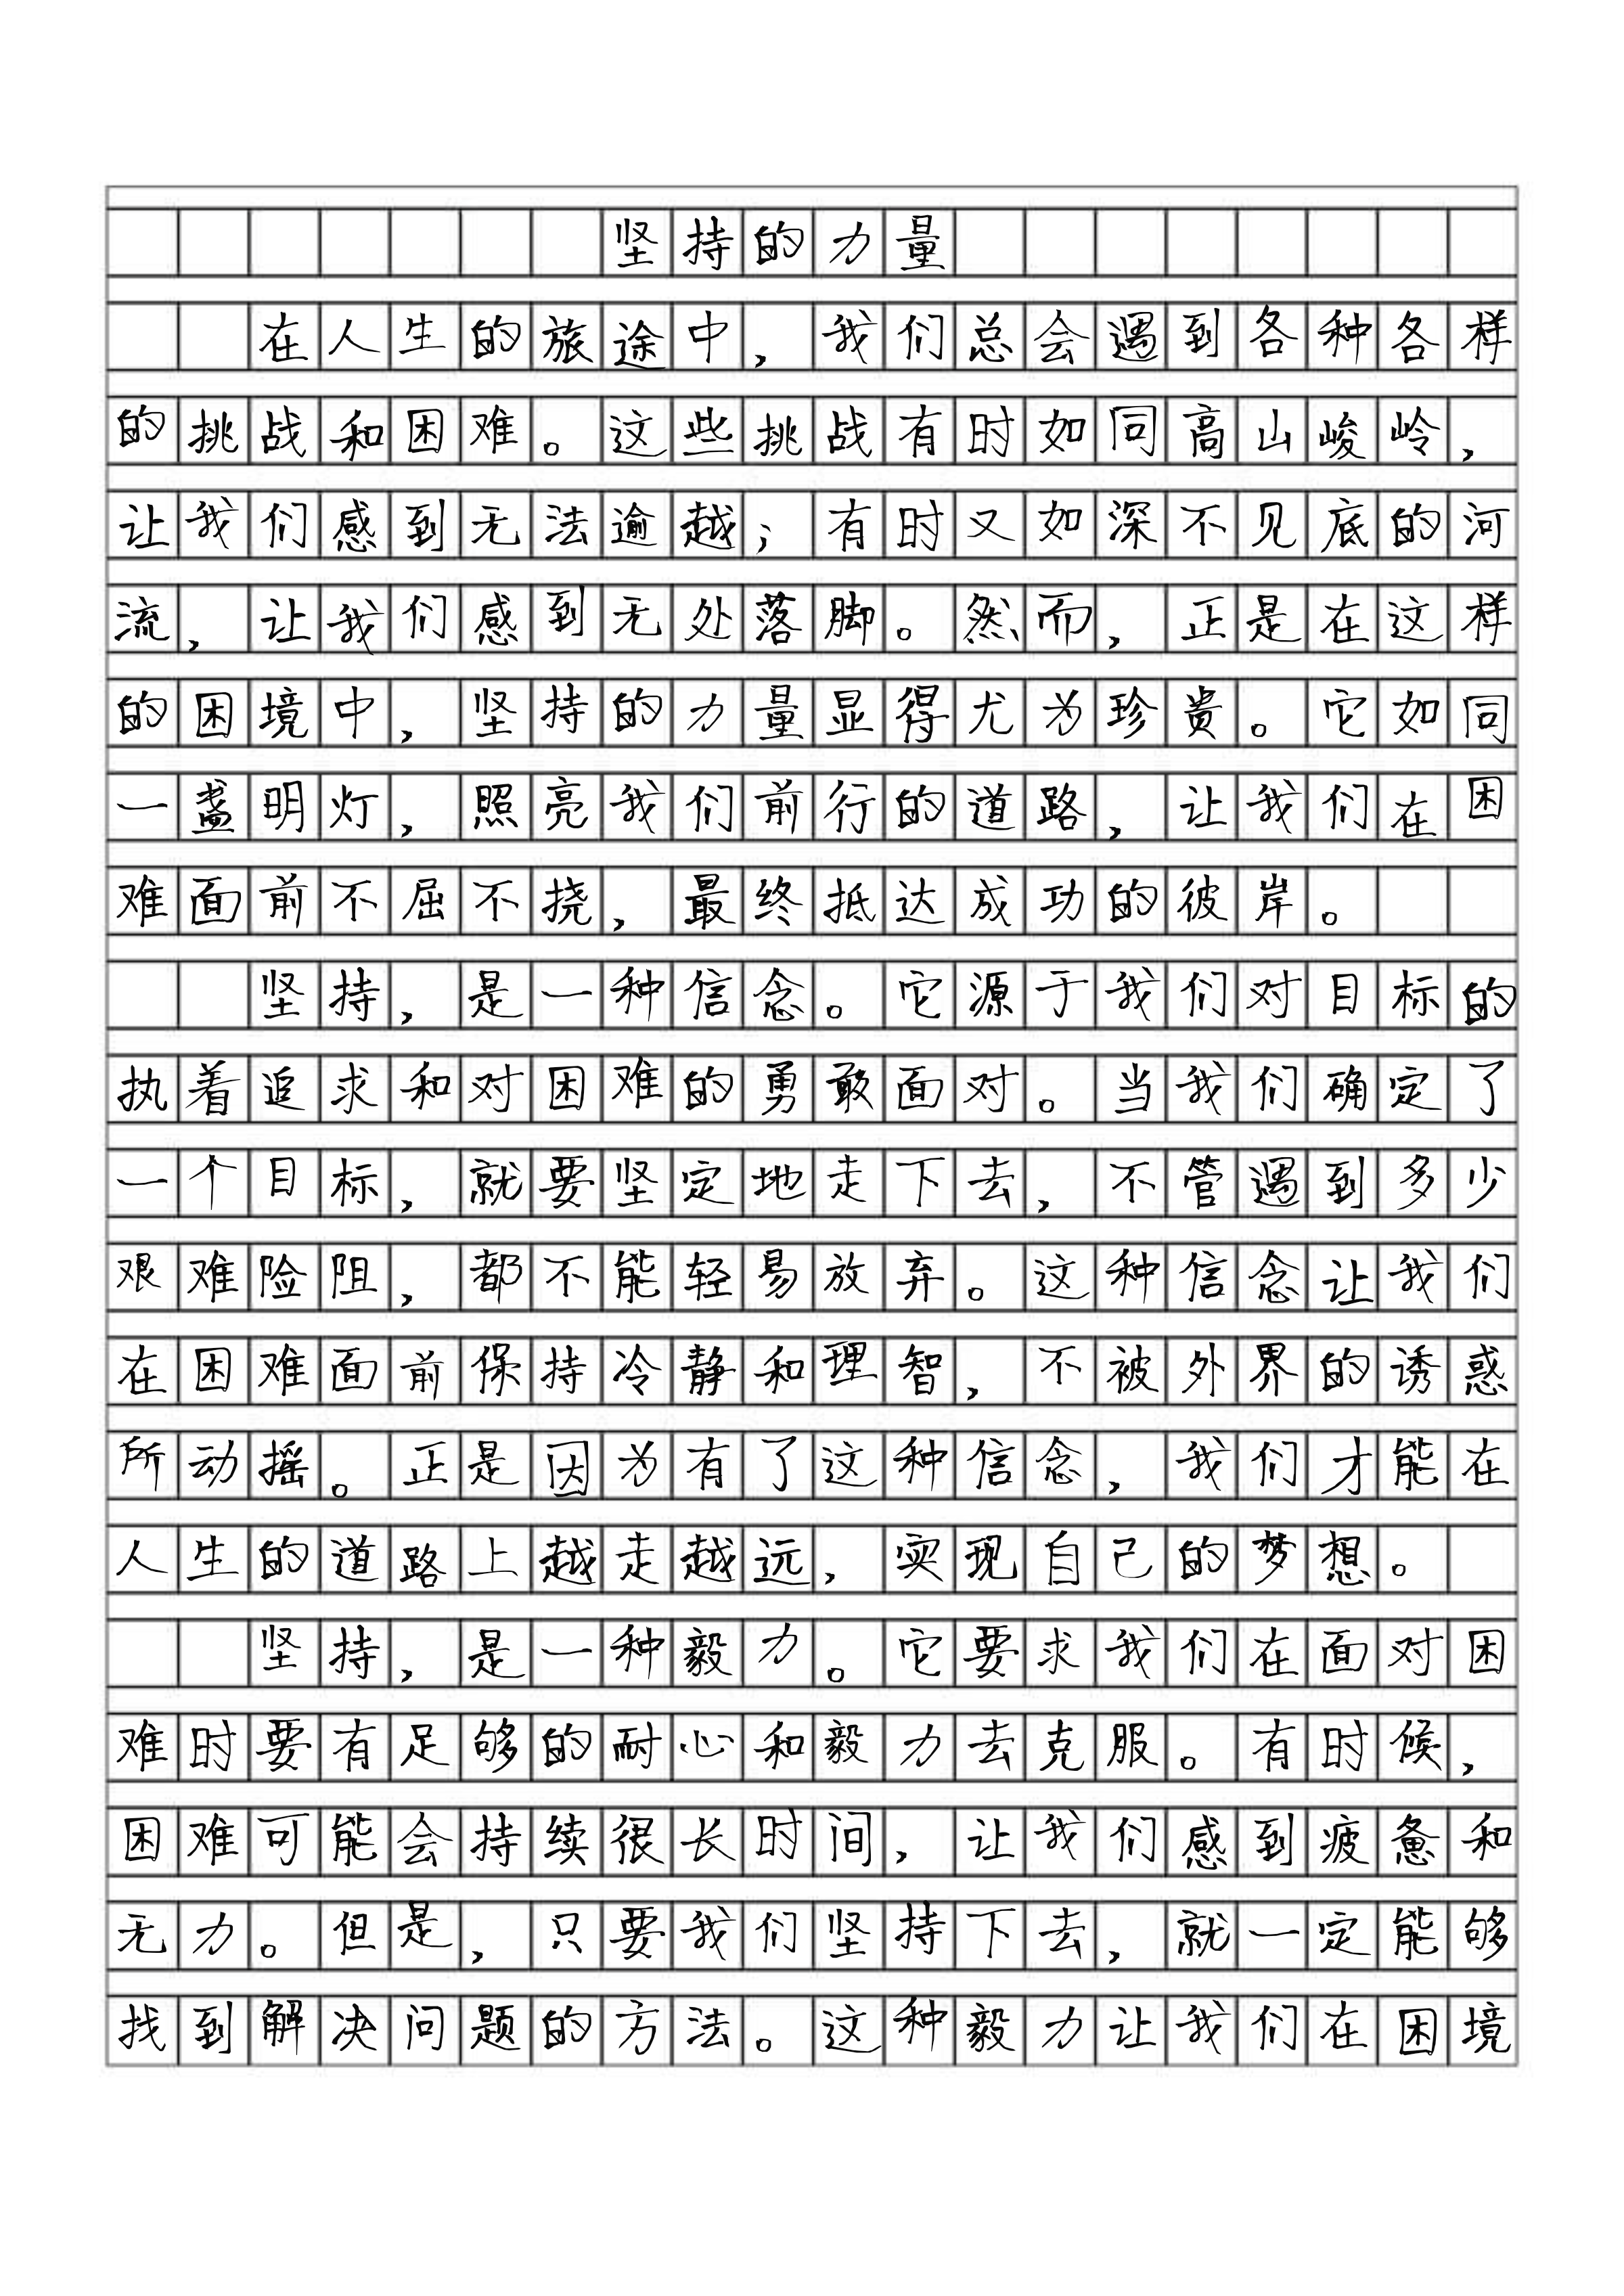 坚持的力量
在人生的旅途中，我们总会遇到各种各样
的挑战和困难。这些挑战有时如同高山峻岭，
让我们感到无法逾越；有时又如深不见底的河
流，让我们感到无处落脚。然而，正是在这样
的困境中，坚持的力量显得尤为珍贵。它如同
一盏明灯，照亮我们前行的道路，让我们在困
难面前不屈不挠，最终抵达成功的彼岸。
坚持，是一种信念。它源于我们对目标的
执着追求和对困难的勇敢面对。当我们确定了
一个目标，就要坚定地走下去，不管遇到多少
艰难险阻，都不能轻易放弃。这种信念让我们
在困难面前保持冷静和理智，不被外界的诱惑
所动摇。正是因为有了这种信念，我们才能在
人生的道路上越走越远，实现自己的梦想。
坚持，是一种毅力。它要求我们在面对困
难时要有足够的耐心和毅力去克服。有时候，
困难可能会持续很长时间，让我们感到疲惫和
无力。但是，只要我们坚持下去，就一定能够
找到解决问题的方法。这种毅力让我们在困境